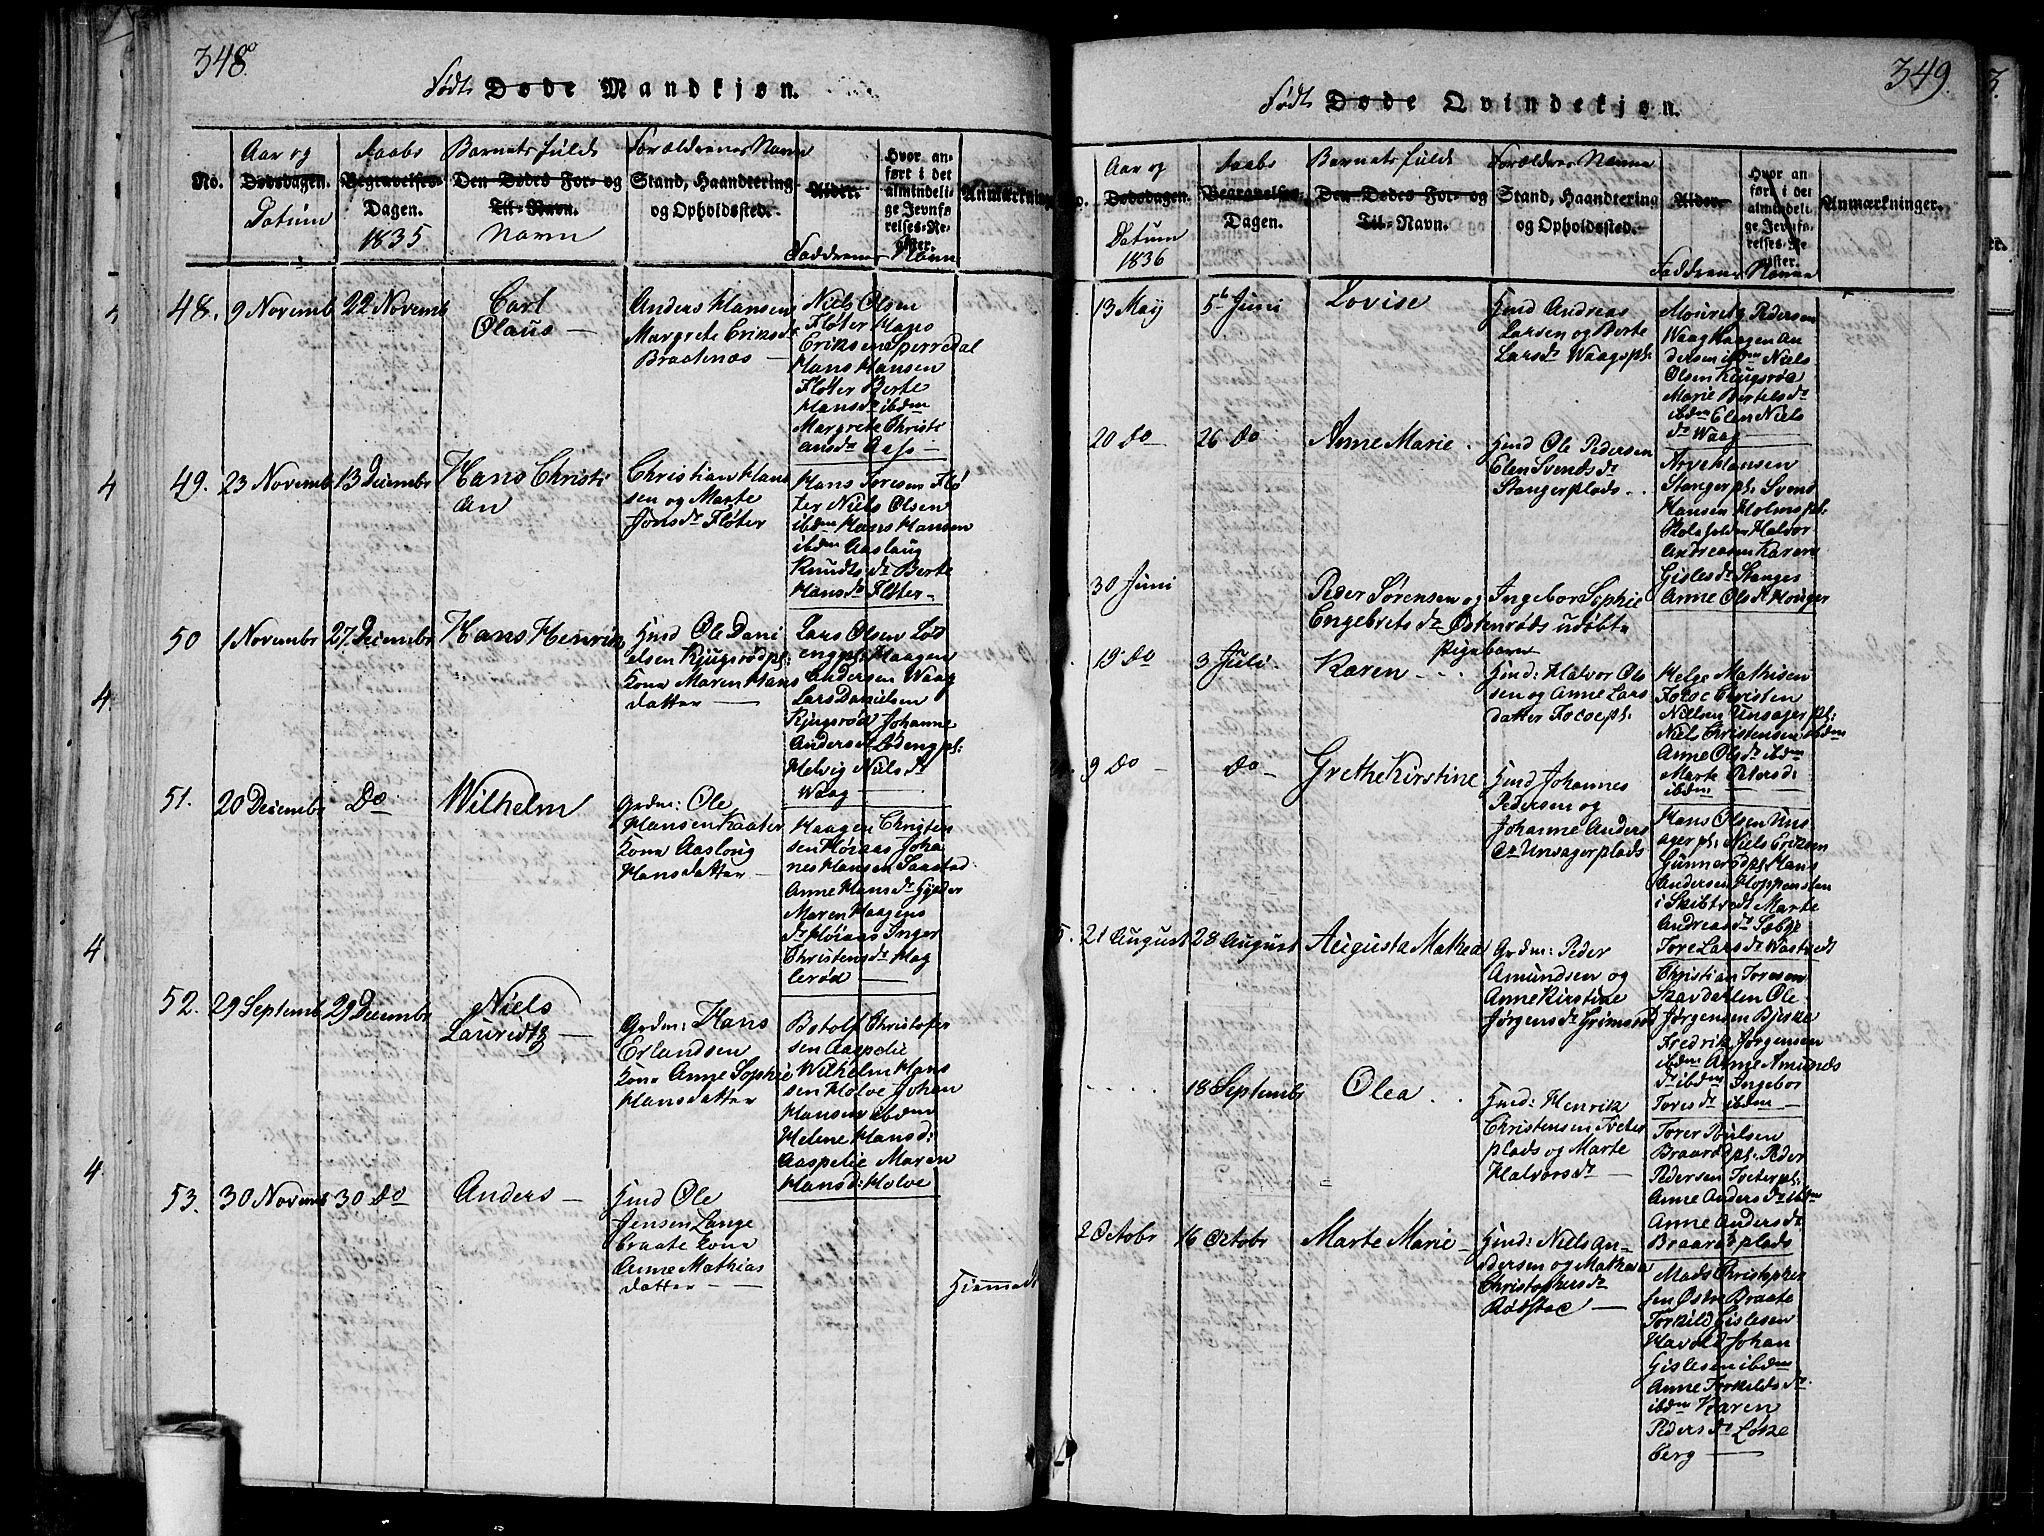 348
Født Døde Mandkjøn.
No.
Aar og
Dødsdagen.
Datum
Daabs
Begravelses-
Dagen.
1835
Barnets fulde
Den Dødes For- og
Til-Navn.
Navn
Forældrenes Navn
Stand, Haandtering
og Opholdssted.
Alder.
Faddernes Navn
Hvor an-
ført i det
almindeli-
ge Jevnfø-
relses-Re-
gister.
Anmærkning
48. 9 Novemb 22 Novemb
Carl
Olaus
Anders Hansen
Margrete Eriksdr
Braatnæs
Niels Olsen
Fløter Hans
Eriksen Sperredal
Hans Hansen
Fløter Berte
Hansdr ibdm
Margrete Christi
ansdr Aass
49. 23 Novemb 13 Decembr
Hans Christi
an
Christian Hans
sen og Marte
Jonsdr Fløter
Hans Toresen Flø
ter Niels Olsen
ibdm Hans Hansen
ibdm Aaslaug
Knudtsdr Berte
Hansdr Fløter
50 1 Novembr 27 Decembr
Hans Henrik
Hmd Ole Dani
elsen Kjugsrødpl:
Kone Maren Hans
datter
Lars Olsen Lød
engpl: Haagen
Andersen Waag
Lars Danielsen
Kjugsrød Johanne
Andersdr Lødengpl:
Helvig Nielsdr
Waag
51. 20 Decembr Do
Wilhelm
Grdm: Ole
Hansen Kaater
Kone Aasloug
Hansdatter
Haagen Christen
sen Høiaas Joha
nes Hansen Saastad
Anne Hansdr Gylder
Maren Haagens
dr Høiaas Inger
Christensdr Hag
lerød
52. 29 Septemb 29 Decembr
Niels
Lauridtz
Grdm: Hans
Erlandsen
Kone Anne Sophie
Hansdatter
Botolf Christofer
sen Aaspelie
Wilhelm Hans
sen Holve Johan
Hansen ibdm
Helene Hansd:
Aaspelie Maren
Hansd: Holve
53. 30 Novemb 30 Do
Anders
Hmd Ole
Jensen Lange
braate Kone
Anne Mathias
datter
Hiemmedt
349.
Født Døde Qvindekjøn.
Aar og
Dødsdagen.
Datum
1836
Daabs
Begravelses-
Dagen.
Barnets fulde
Den Dødes For- og
Til-Navn.
Forældrenes Navne
Stand, Haandtering
og Opholdssted.
Alder.
Faddernes Navne
Hvor an-
ført i det
almindeli-
ge Jevnfø-
relses-Re-
gister.
Anmærkninger.
13 Maij 5te Juni
Lovise
Hmd Andreas
Larsen og Berte
Larsdr Waagspl:
Mouretz Pedersen
Waag Haagen An
dersen ibdm Niels
Olsen Kjugsrød
Marie Bertelsdr
ibdm Elen Niels
dr Waag
20 Do 26 Do
Anne Marie
Hmd Ole Pedersen
Elen Svendsdr
Stangerplads
Arve Hansen
Stangerpl: Svend
Hansen Holmspl:
Halvor
Andreasen Karen
Gislesdr Stanger
Anne Olsdr Houger
30 Juni
Peder Sørensen og Ingebor Sophie
Engebretsdr Østenrøds udøbte
Pigebarn
19 Do 3 Juli
Karen
Hmd: Halvor Ols
sen og Anne Lars
datter Focoepl:
Helge Mathisen
Focoe Christen
Nielsen Unsagerpl:
Niels Christensen ibdm
Anne Olsdr ibdm
Marte Petersd:
ibdm
9 Do Do
Grethe Kirstine
Hmd Johannes
Pedersen og
Johanne Anders
dr Unsagerplads
Hans Olsen Uns
agerpl: Niels Eriksen
Gunnersødpl: Hans
Andersen Hoppensten
i Skibtvedt Marte
Andreasdr Sæbye
Tore Larsdr Wastvedt
21 August 28 August
Augusta Mathea
Grdm: Peder
Amundsen og
Anne Kirstine
Jørgensdr Grimsrød
Christian Toresen
Skavdallen Ole
Jørgensen Bjerke
Fredrik Jørgensen
ibdm Anne Amunds
dr ibdm Ingebor
Toresdr ibdm
18 Septembr
Olea
Hmd: Henrik
Christensen Tveter
plads og Marte
Halvorsdr
Torer Poulsen
Braarødpl: Peder
Pedersen Tveterpl:
Anne Andersdr ibdm
Anne Andersdr
Braarødplads
2 Octobr 16 Octobr
Marte Marie
Hmd: Niels An-
dersen og Mathea
Christophersdr
Rødstoe
Mads Christopher
sen Østre Braate
Torkild Gislesen
Havold Johan
Gislesen ibdm
Anne Torkildsdr
ibdm Karen
Pedersdr Løkke
berg